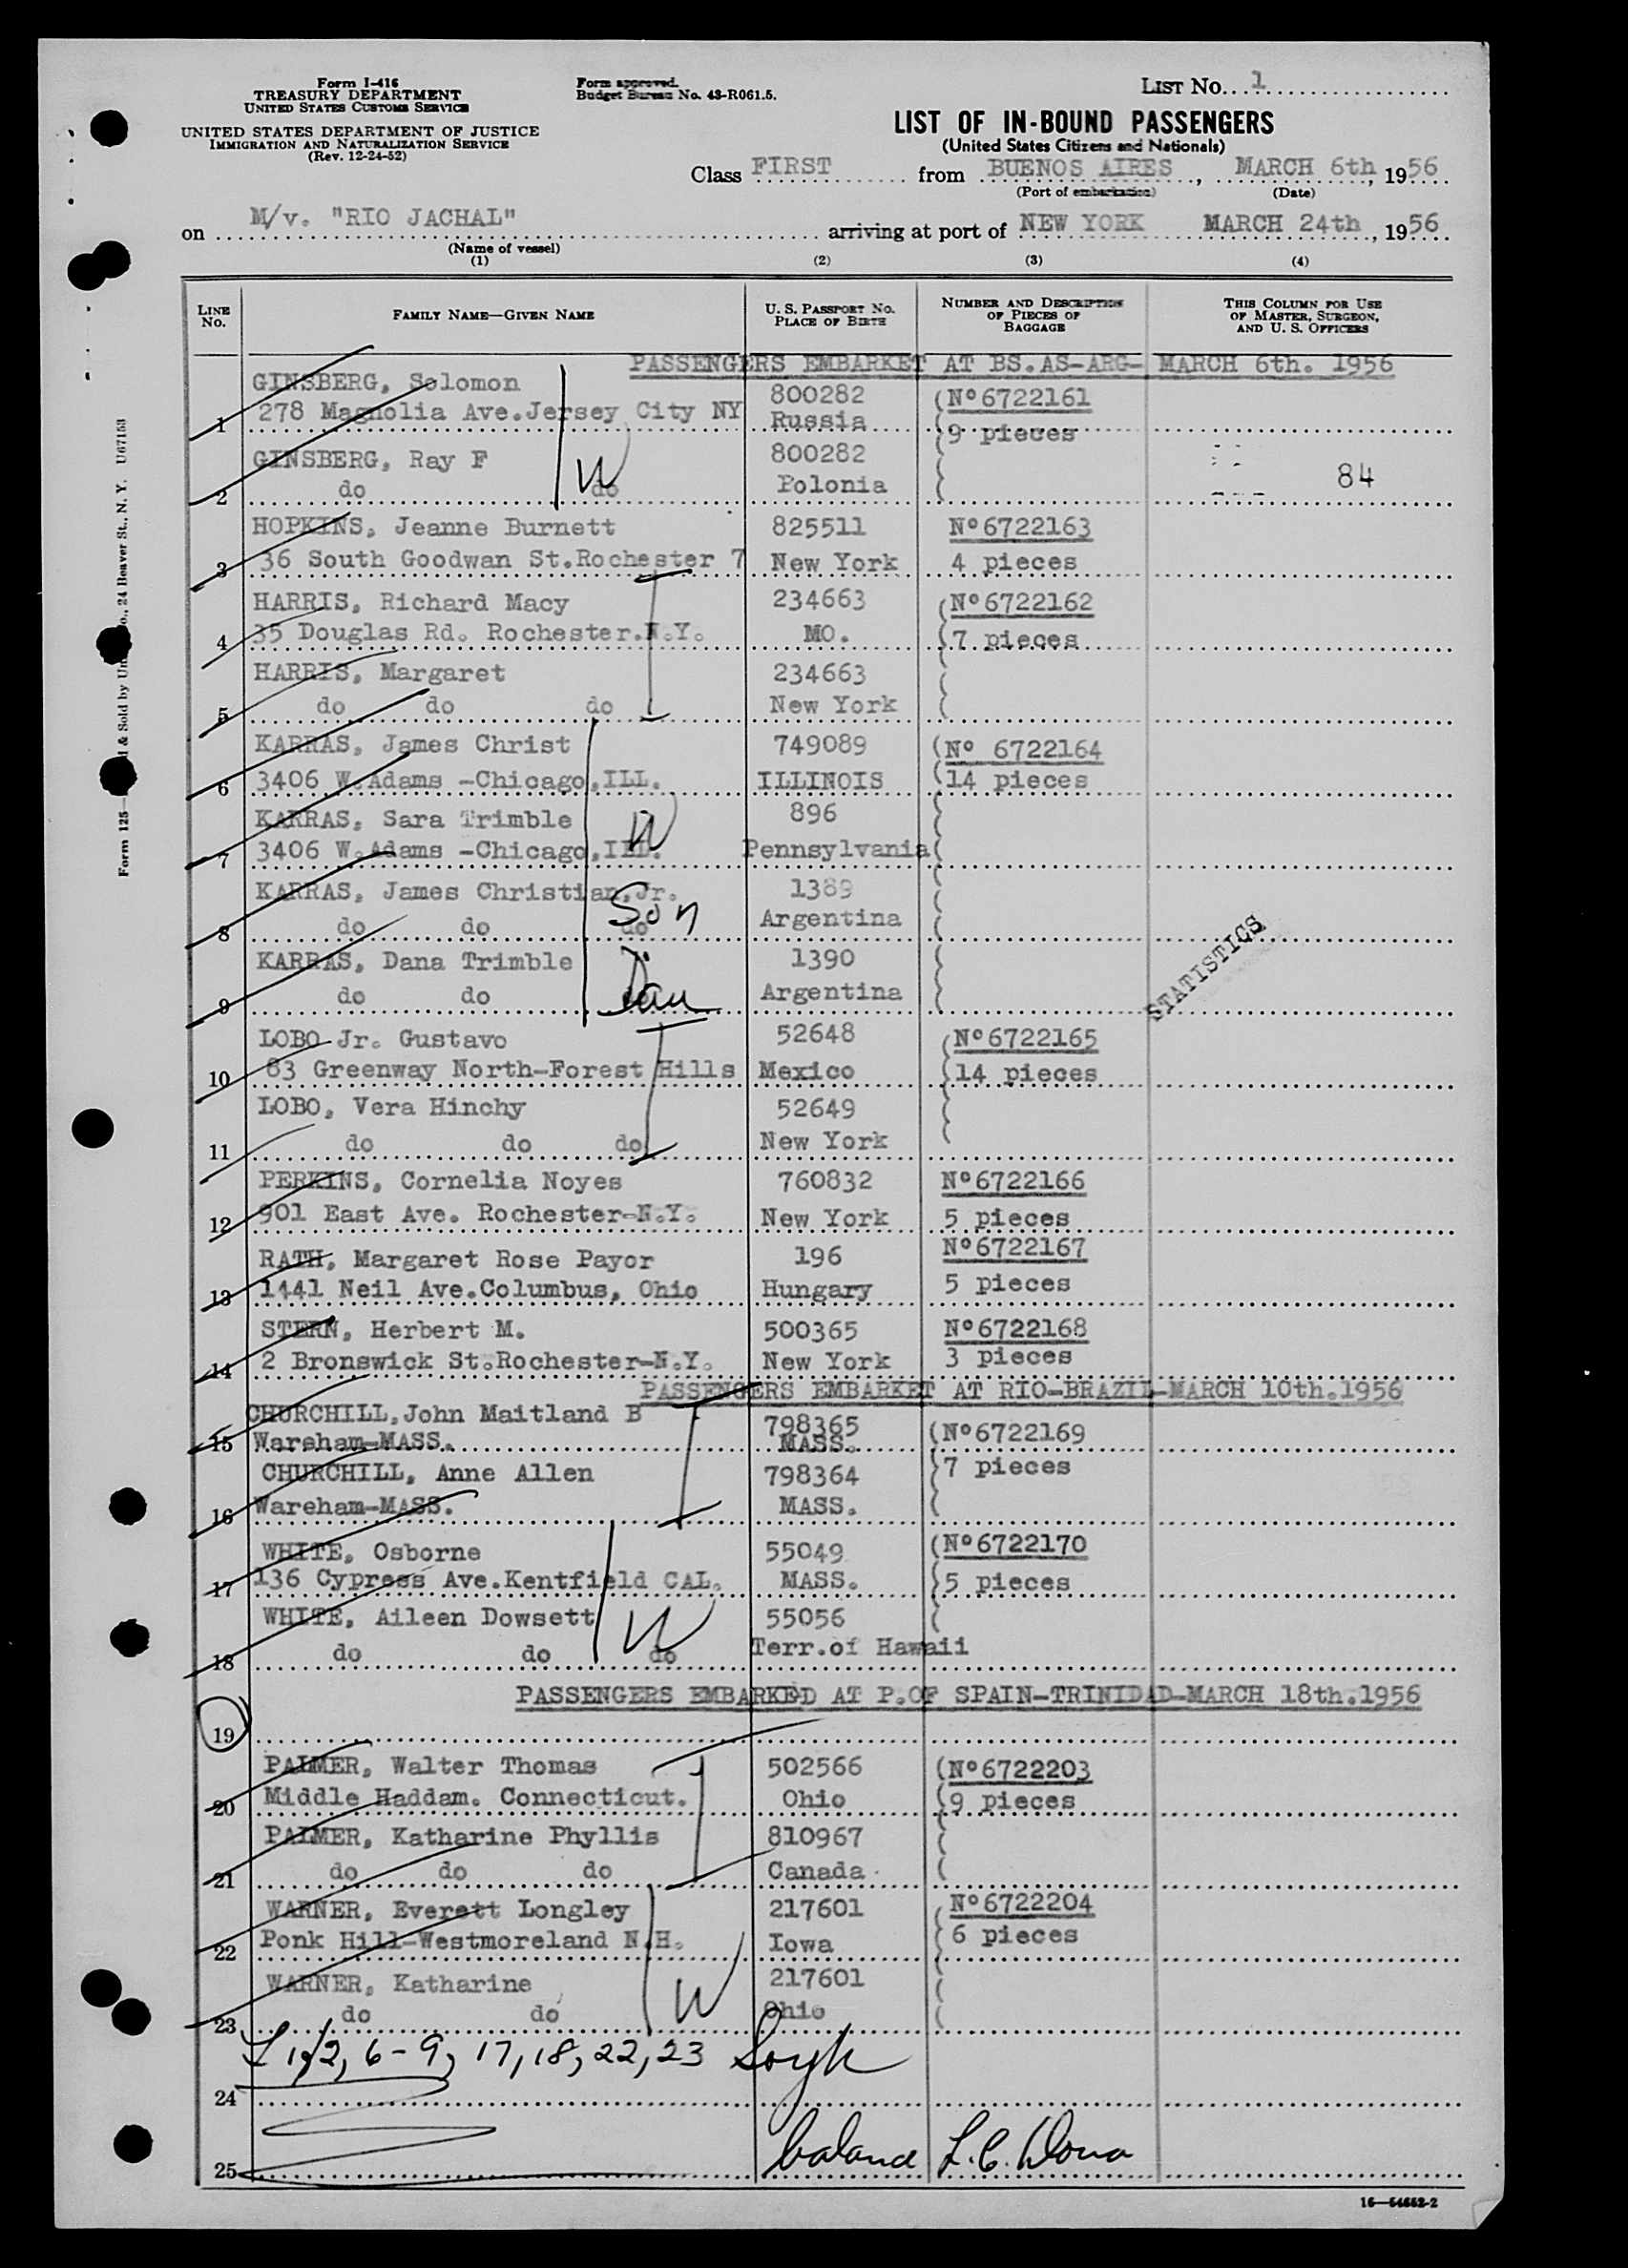 Form I-416
TREASURY DEPARTMENT
UNITED STATES CUSTOMS SERVICE
UNITED STATES DEPARTMENT OF JUSTICE
IMMIGRATION AND NATURALIZATION SERVICE
(Rev. 12-24-52)
Form approved.
Budget Bureau No. 43-R061.5.
LIST No. 1
LIST OF IN-BOUND PASSENGERS
(United States Citizens and Nationals)
Class FIRST from BUENOS AIRES, MARCH 6th, 1956
(Port of embarkation) (Date)
on M/v. "RIO JACHAL" arriving at port of NEW YORK MARCH 24th, 1956
(Name of vessel)
(1) (2) (3) (4)
LINE No. FAMILY NAME—GIVEN NAME U. S. PASSPORT No. PLACE OF BIRTH NUMBER AND DESCRIPTION OF PIECES OF BAGGAGE THIS COLUMN FOR USE OF MASTER, SURGEON, AND U. S. OFFICERS
PASSENGERS EMBARKET AT BS.AS-ARG- MARCH 6th. 1956
GINSBERG, Solomon 800282 (Nº6722161
1 278 Magnolia Ave.Jersey City NY Russia 9 pieces
GINSBERG, Ray F W 800282
2 do do Polonia 84
HOPKINS, Jeanne Burnett 825511 Nº6722163
3 36 South Goodwan St.Rochester 7 New York 4 pieces
HARRIS, Richard Macy 234663 (Nº6722162
4 35 Douglas Rd. Rochester.N.Y. MO. 7 pieces
HARRIS, Margaret 234663
5 do do do New York
KARRAS, James Christ 749089 (Nº 6722164
6 3406 W.Adams -Chicago,ILL. ILLINOIS (14 pieces
KARRAS, Sara Trimble W 896
7 3406 W.Adams -Chicago,ILL. Pennsylvania
KARRAS, James Christian,Jr. 1389
8 do do do Son Argentina
KARRAS, Dana Trimble 1390
9 do do Dau Argentina
STATISTICS
LOBO Jr. Gustavo 52648 (Nº6722165
10 83 Greenway North-Forest Hills Mexico (14 pieces
LOBO, Vera Hinchy 52649
11 do do do New York
PERKINS, Cornelia Noyes 760832 Nº6722166
12 901 East Ave. Rochester-N.Y. New York 5 pieces
RATH, Margaret Rose Payor 196 Nº6722167
13 1441 Neil Ave.Columbus, Ohio Hungary 5 pieces
STERN, Herbert M. 500365 Nº6722168
14 2 Bronswick St.Rochester-N.Y. New York 3 pieces
PASSENGERS EMBARKET AT RIO-BRAZIL-MARCH 10th.1956
CHURCHILL,John Maitland B 798365 (Nº6722169
15 Wareham-MASS. MASS. 7 pieces
CHURCHILL, Anne Allen 798364
16 Wareham-MASS. MASS.
WHITE, Osborne 55049 (Nº6722170
17 136 Cypress Ave.Kentfield CAL. MASS. 5 pieces
WHITE, Aileen Dowsett W 55056
18 do do do Terr.of Hawaii
PASSENGERS EMBARKED AT P.OF SPAIN-TRINIDAD-MARCH 18th.1956
19
PALMER, Walter Thomas 502566 (Nº6722203
20 Middle Haddam. Connecticut. Ohio (9 pieces
PALMER, Katharine Phyllis 810967
21 do do do Canada
WARNER, Everett Longley 217601 Nº6722204
22 Ponk Hill-Westmoreland N.H. Iowa 6 pieces
WARNER, Katharine W 217601
23 do do Ohio
L 1,2, 6-9, 17,18, 22,23
24
25 L.C.
16—54652-2
Form 125— & Sold by 24 Beaver St., N. Y. U67153